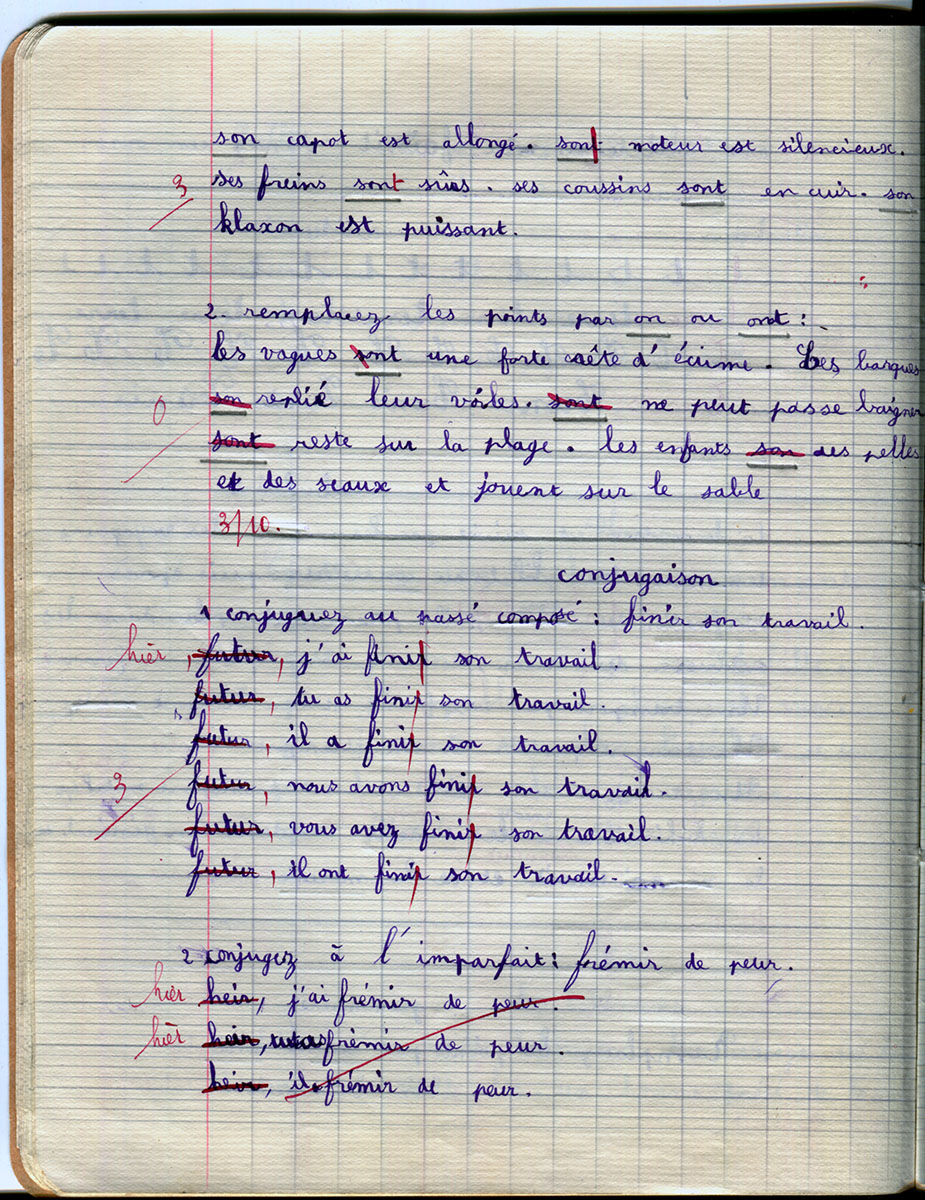 son capot est allongé. sont moteur est silencieux.
3 ses freins sont sûrs. ses coussins sont en cuir. son
klaxon est puissant.
2. remplacez les points par on ou ont :
les vagues sont une forte crête d'écume. Les barques
0 son replié leur voiles. sont ne peut passe baigner
sont reste sur la plage. les enfants son des pelles
et des seaux et jouent sur le sable
3/10.
conjugaison
1 conjuguez au passé composé : finir son travail.
hier, futur, j'ai finir son travail.
futur, tu as finir son travail.
futur, il a finir son travail.
3 futur, nous avons finir son travail.
futur, vous avez finir son travail.
futur, il ont finir son travail.
2 conjugez à l'imparfait : frémir de peur.
hier heir, j'ai frémir de peur.
hièr heir, tu as frémir de peur.
heir, il frémir de peur.